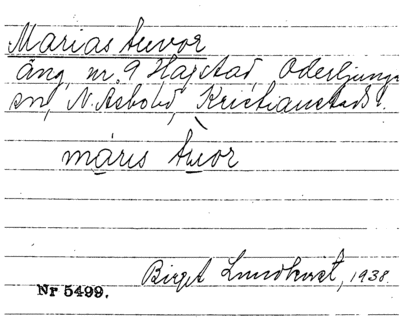 Marias tuvor
äng, nr. 9 Hagstad, Oderljunga
sn, N. Åsbo hd, Kristianstads l.
măris tuvor
Birgit Lundkvist, 1938.
Nr 5499.